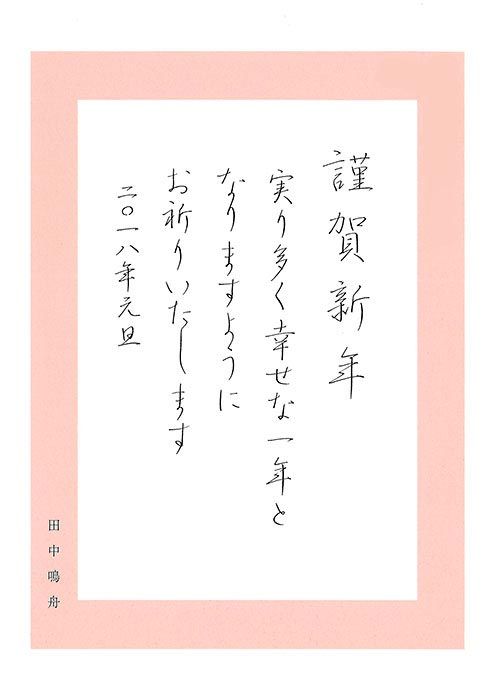 謹賀新年
実り多く幸せな一年と
なりますように
お祈りいたします
二〇一八年元旦
田中鳴舟